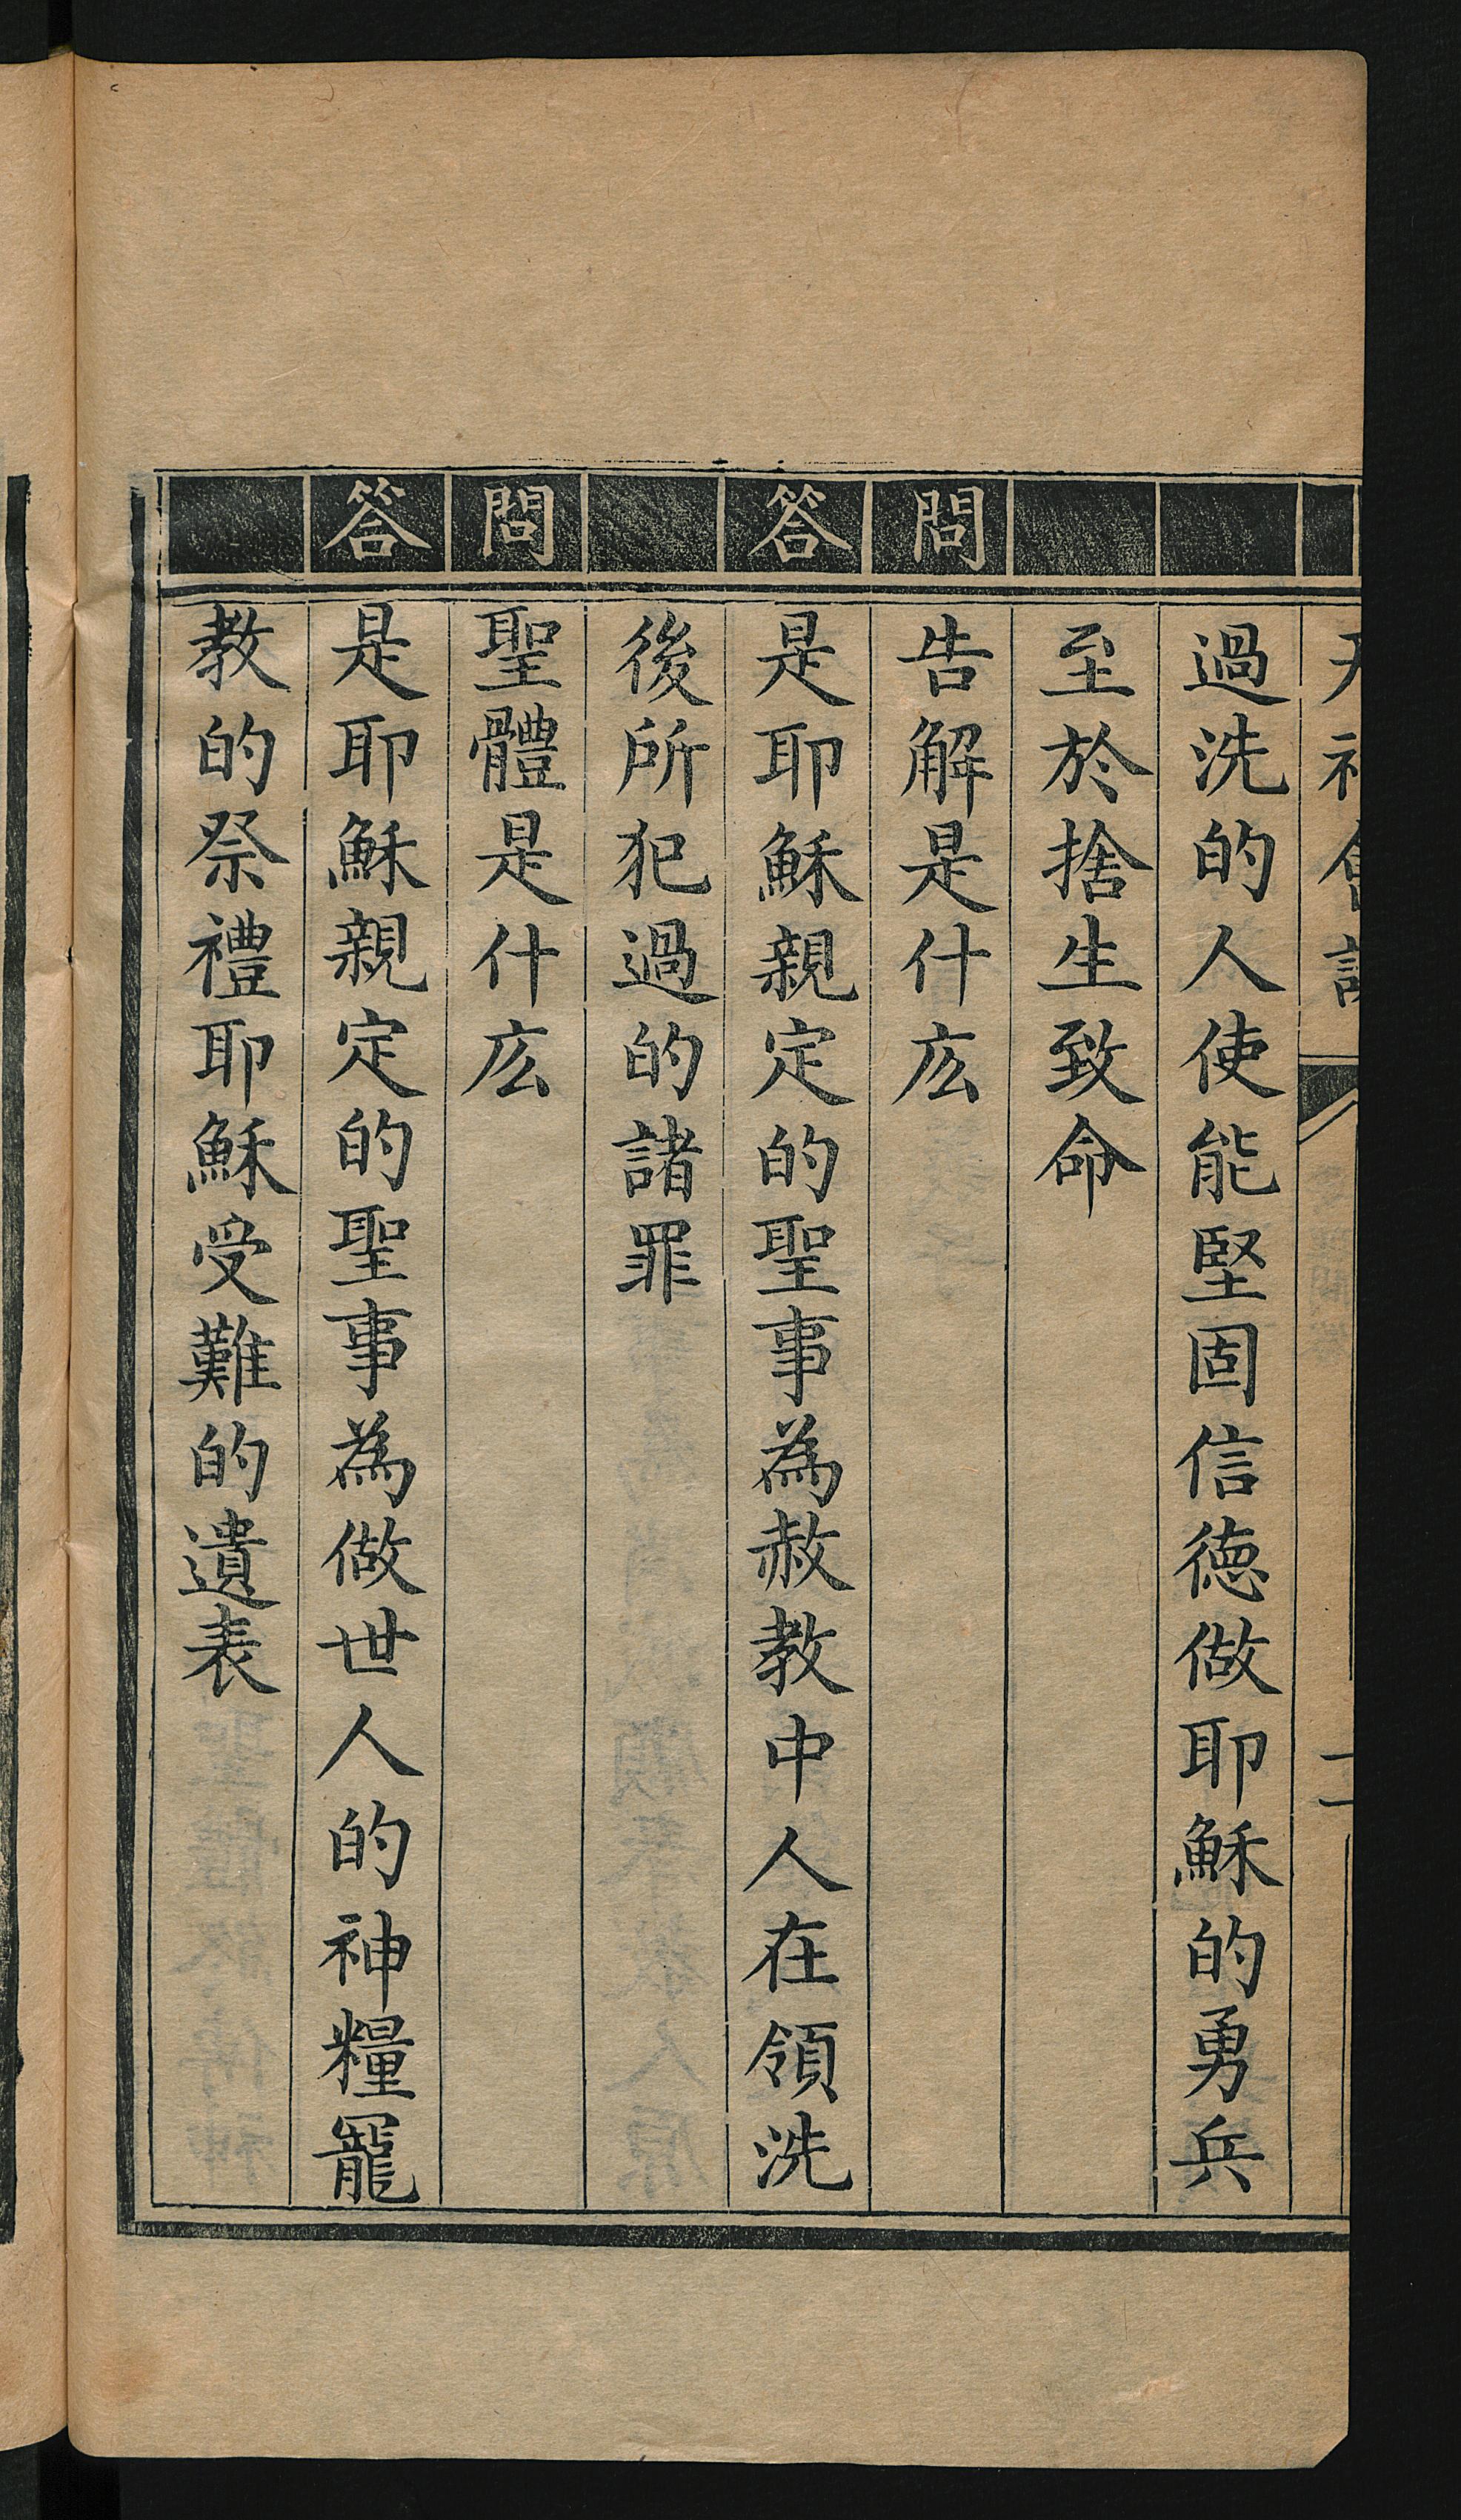 過洗的人使能堅固信徳做耶穌的勇兵
至於捨生致命
問
告解是什庅
答
是耶穌親定的聖事為赦教中人在領洗
後所犯過的諸罪
問
聖體是什庅
答
是耶穌親定的聖事為做世人的神糧寵
教的祭禮耶穌受難的遺表